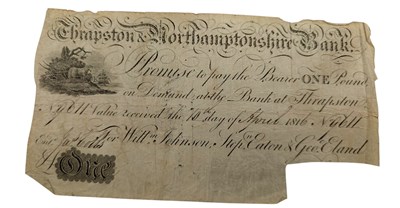 Thrapston & Northamptonshire Bank.
I Promise to pay the Bearer ONE Pound,
on Demand, at my Bank at Thrapston
Value received the day of 1816 No
For Willm. Johnson, Stepn. Eaton & Geo. Eland
One